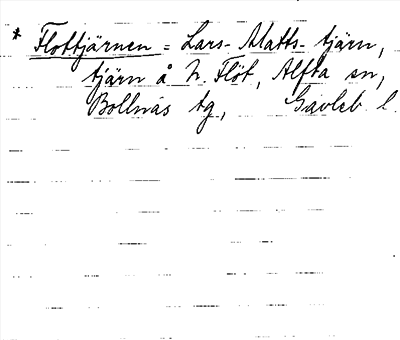 * Flottjärnen = Lars-Matts-tjärn,
tjärn å N. Flöt, Alfta sn,
Bollnäs tg, Gävleb l.